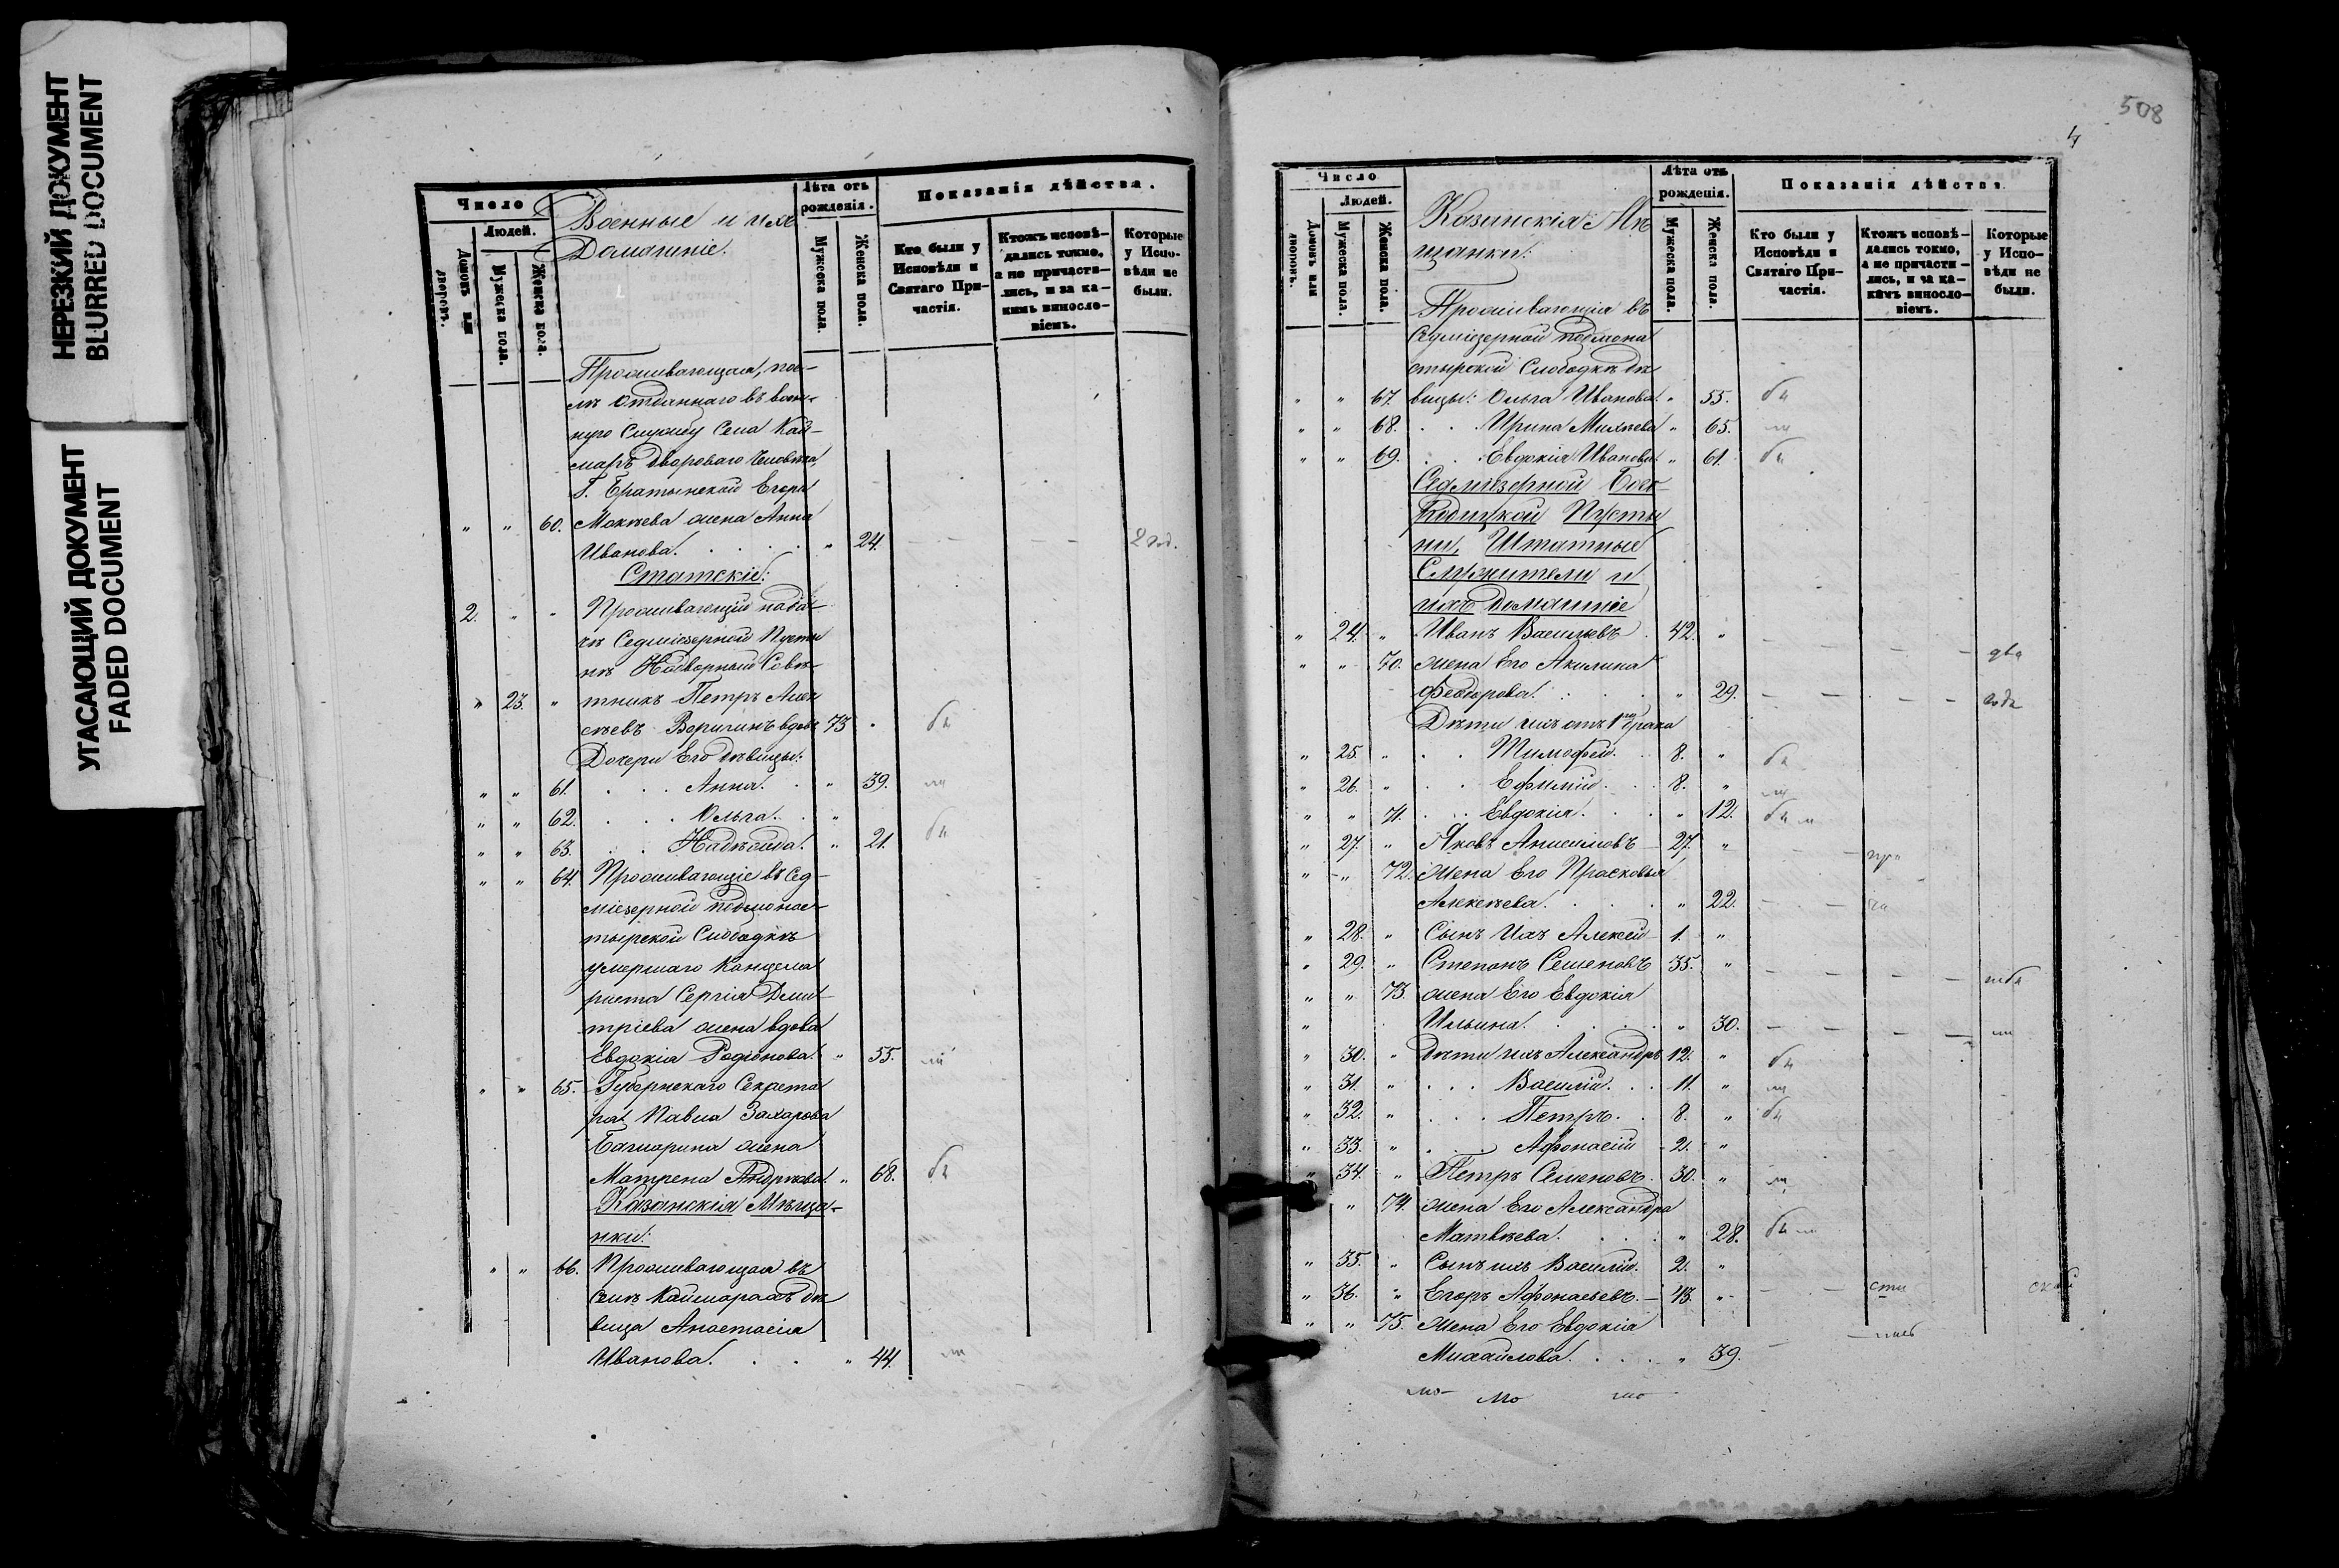 НЕРЕЗКИЙ ДОКУМЕНТ
BLURRED DOCUMENT
УГАСАЮЩИЙ ДОКУМЕНТ
FADED DOCUMENT
Число
Людей.
Домовъ или дворовъ.
Мужеска пола.
Женска пола.
Военные и ихъ
Домашніе.
Лѣта отъ рожденія.
Мужеска пола.
Женска пола.
Показанія дѣйства.
Кто были у Исповѣди и Святаго Причастія.
Ктожъ исповѣ-
дались токмо,
а не причасти-
лись, и за ка-
кимъ винсло-
віемъ.
Которые
у Испо-
вѣди не
были.
Проживающая, пос-
лѣ отданнаго въ воен-
ную службу Села Кай-
маръ двороваго человѣка,
Г. Братынской Егора
" " 60. Мокѣева жена Анна
Иванова. " 24. 2 год.
Статскіе:
2. " " Проживающій на да-
чѣ Седміезерной Пусты
нѣ Надворный Совѣ-
" 23. " тникъ Петръ Алек
сѣевъ Веригинъ вдовъ 73 " бы
Дочери Его дѣвицы:
" " 61. Анна. " 39. ли
" " 62. Ольга. "
" " 63. Надѣжда. " 21. бы
" " 64. Проживающіе въ Сед-
міезерной подмонас-
тырской Слободкѣ
умершаго Канцеля
риста Сергія Дми-
тріева жена вдова
Евдокія Родіонова. " 55. ли
" " 65. Губернскаго Секрета
ря Павла Захарова
жена
Матрена Андрѣева. " 68. бы
Казанскія Мѣща-
нки:
" " 66. Проживающая въ
селѣ Каймарахъ дѣ
вица Анастасія
Иванова. " 44. ли
508
4
Число
Людей.
Домовъ или дворовъ.
Мужеска пола.
Женска пола.
Казанскія Мѣ
щанки:
Лѣта отъ рожденія.
Мужеска пола.
Женска пола.
Показанія дѣйства.
Кто были у Исповѣди и Святаго Причастія.
Ктожъ исповѣ-
дались токмо,
а не причасти-
лись, и за ка-
кимъ винсло-
віемъ.
Которые
у Испо-
вѣди не
были.
Проживающія въ
Седміезерной подмона
стырской Слободкѣ дѣ
" " 67. вицы: Ольга Иванова. " 55. бы
" " 68. Ирина Михѣева " 65. ли
" " 69. Евдокія Иванова. " 61. бы
Седміезерной Бого-
родицкой Пусты
ни, Штатные
Служители и
ихъ домашніе
" 24. " Иванъ Васильевъ 42. "
" " 70. жена Его Акилина два
Феодорова. " 29. года
Дѣти ихъ отъ 1го брака
" 25. " Тимофей. 8. " бы
" 26. " Ефимій 8. " ли
" " 71. Евдокія. " 12. бы ли
" 27. " Яковъ Анисимовъ 27. "
" " 72. жена Его Прасковья
Алексѣева. " 22.
" 28. " Сынъ Ихъ Алексей 1. "
" 29. " Степанъ Семеновъ 35. "
" " 73. жена Его Евдокія
" Ильина. " 30.
" 30. " дѣти ихъ Александръ 12. " бы
" 31. " Василій. 11. " ли
" 32. " Петръ. 8. " бы
" 33. " Афонасій 2. "
" 34. " Петръ Семеновъ. 30. " ли
" 74. жена Его Александра
Матвѣева. " 28. бы ли
" 35. " Сынъ ихъ Василій. 2. "
" 36. " Егоръ Афонасьевъ. 43. "
" " 75. жена Его Евдокія
Михайлова. " 39.